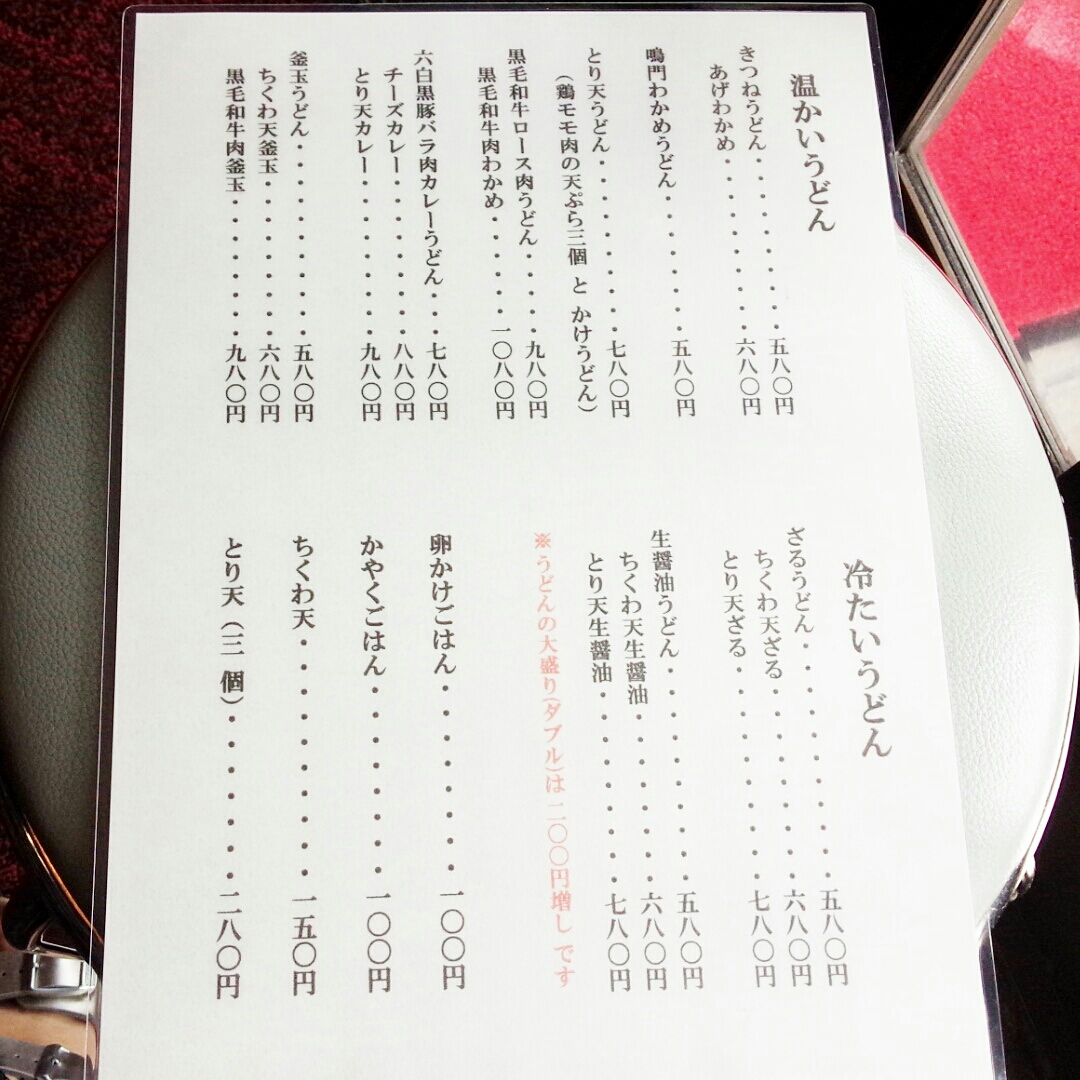 温かいうどん
きつねうどん・・・・・・・・五八〇円
あげわかめ・・・・・・・・六八〇円
鳴門わかめうどん・・・・・・・五八〇円
とり天うどん・・・・・・・・・七八〇円
（鶏モモ肉の天ぷら三個 と かけうどん）
黒毛和牛ロース肉うどん・・・・九八〇円
黒毛和牛肉わかめ・・・・・一〇八〇円
六白黒豚バラ肉カレーうどん・・七八〇円
チーズカレー・・・・・・・・八八〇円
とり天カレー・・・・・・・・九八〇円
釜玉うどん・・・・・・・・・・五八〇円
ちくわ天釜玉・・・・・・・・六八〇円
黒毛和牛肉釜玉・・・・・・・九八〇円
冷たいうどん
さるうどん・・・・・・・・・五八〇円
ちくわ天ざる・・・・・・・・六八〇円
とり天ざる・・・・・・・・・七八〇円
生醤油うどん・・・・・・・・・五八〇円
ちくわ天生醤油・・・・・・・六八〇円
とり天生醤油・・・・・・・・七八〇円
※うどんの大盛り(ダブル)は 二〇〇円増し です
卵かけごはん・・・・・・・・一〇〇円
かやくごはん・・・・・・・・一〇〇円
ちくわ天・・・・・・・・・・一五〇円
とり天（三 個）・・・・・・・二八〇円